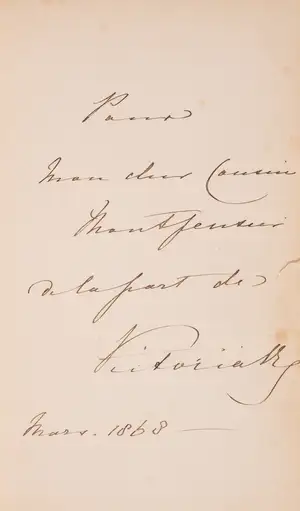 Pour
Mon cher Cousin
Montpensier
de la part de
Victoria R
Mars. 1868